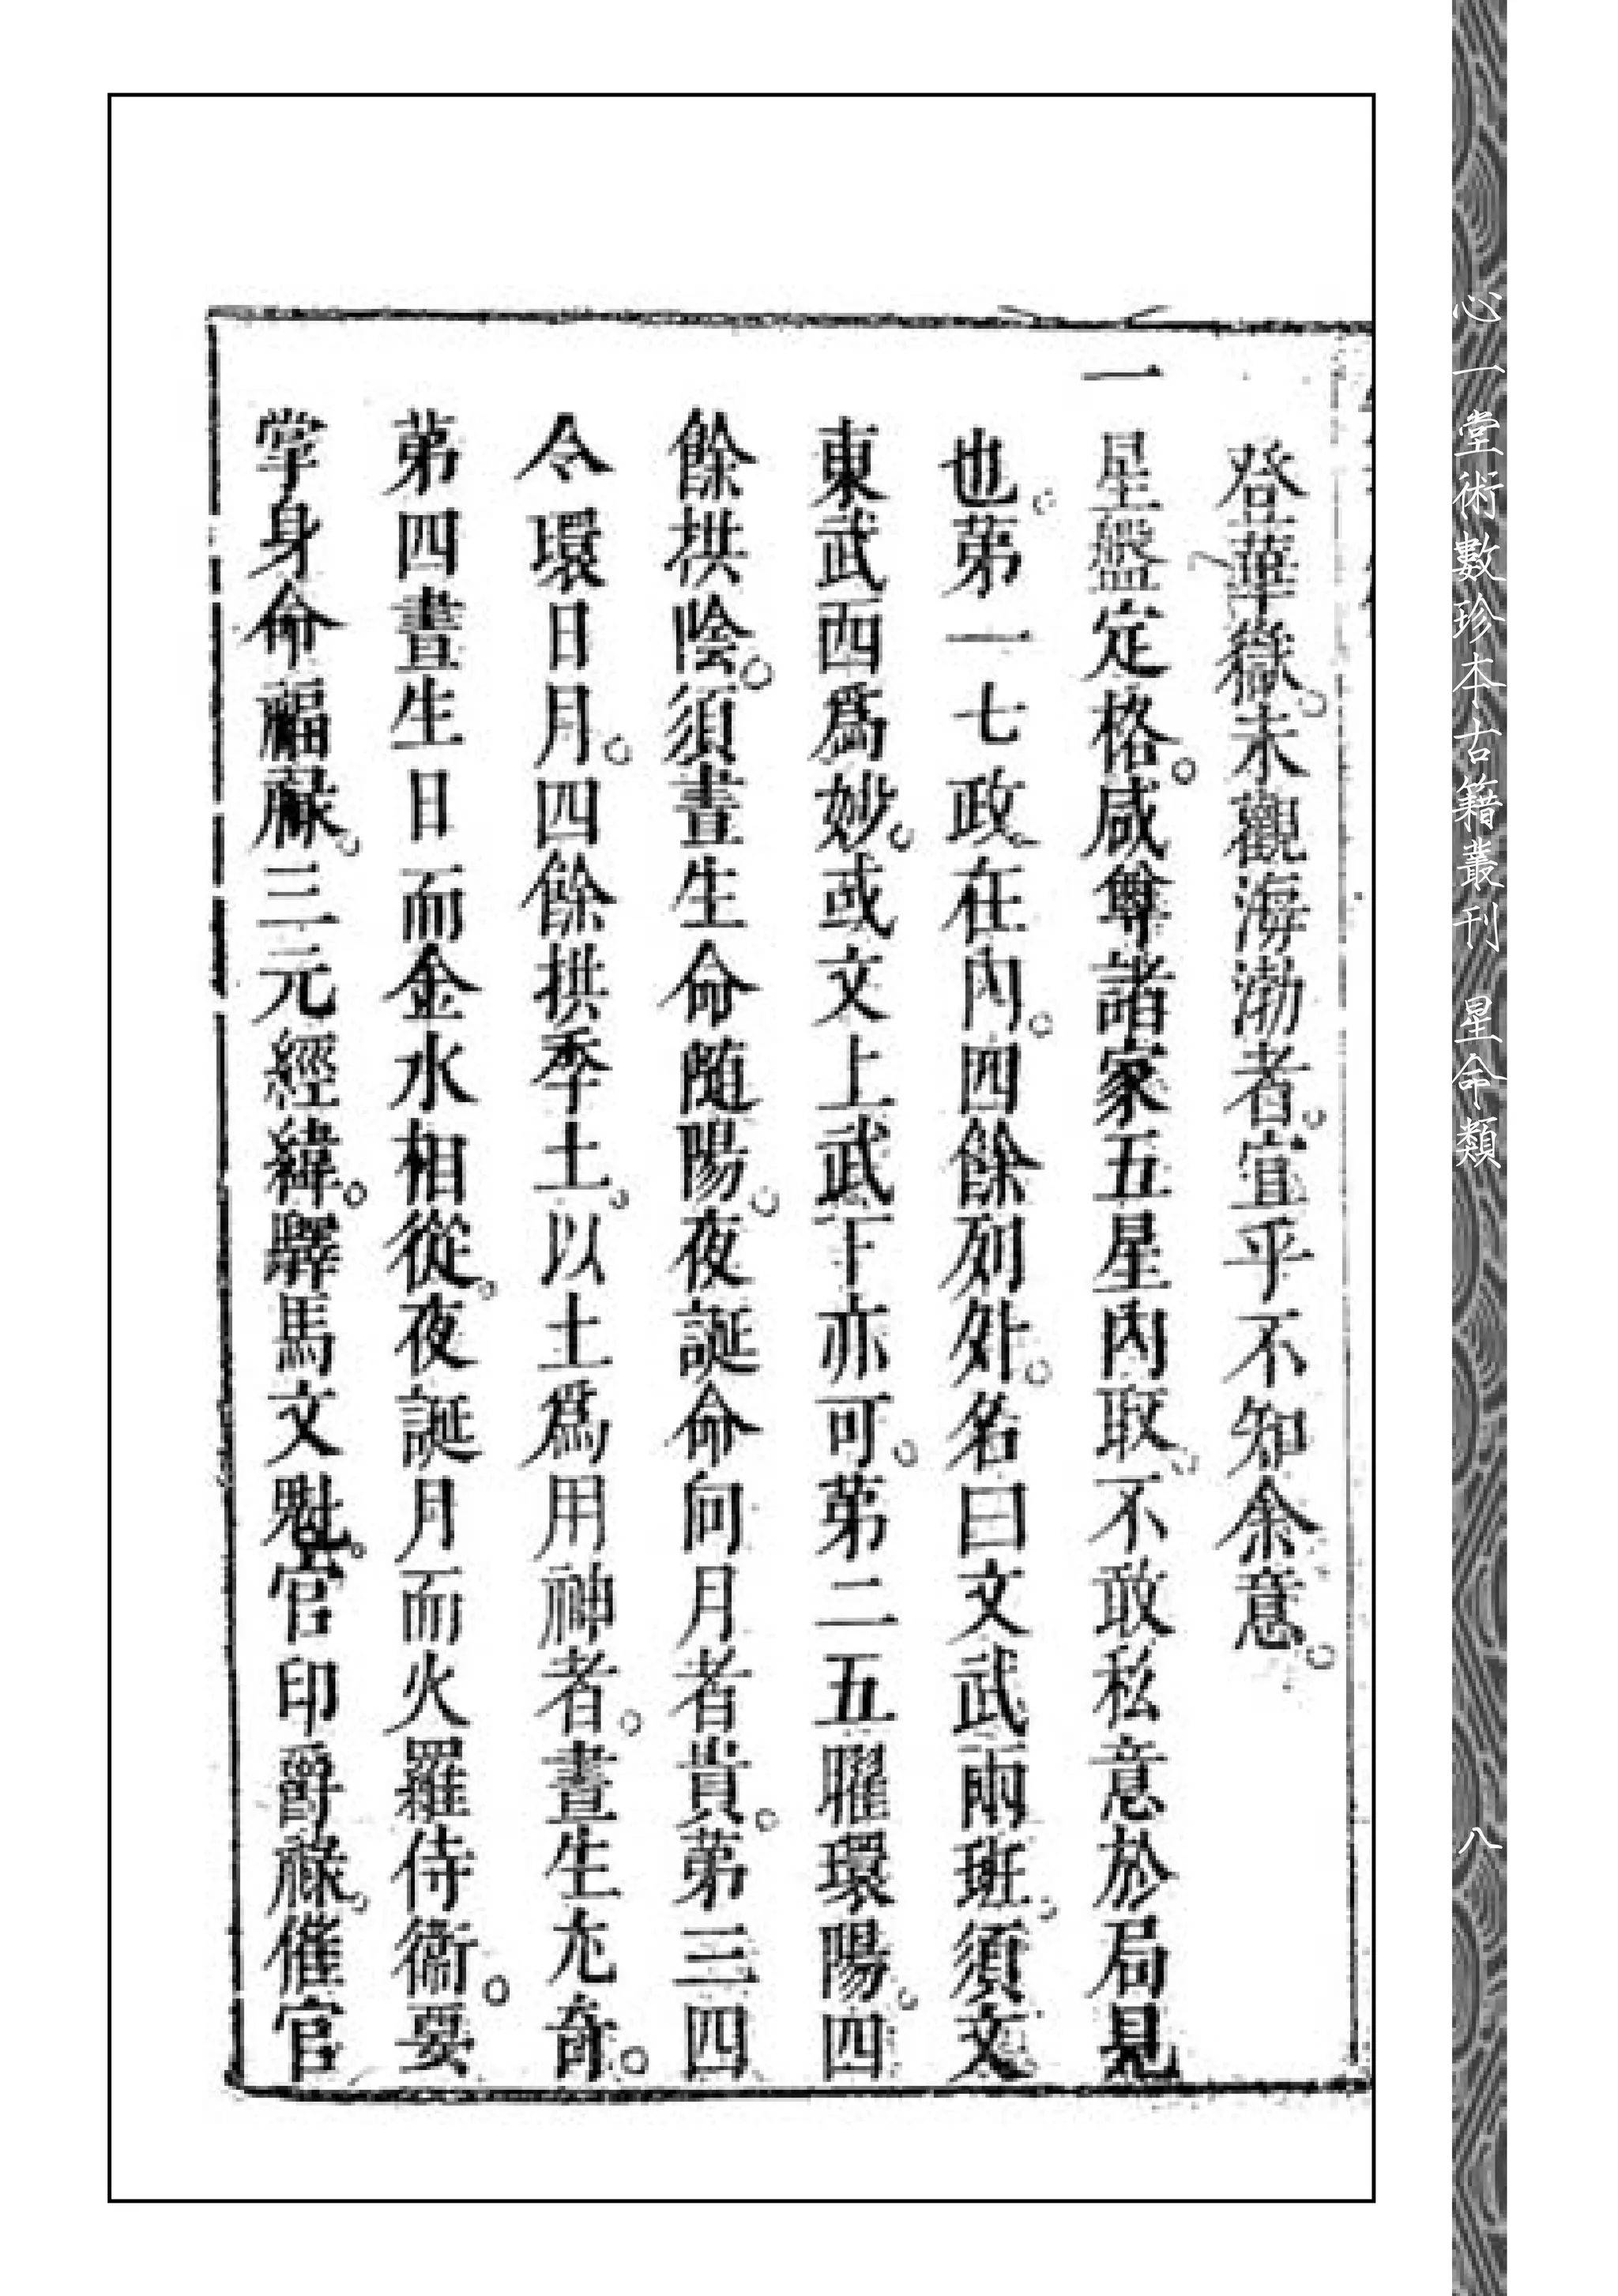 登華嶽。未觀海渤者。宜乎不知余意。
一星盤定格。咸尊諸家五星內取。不敢私意於局見
也。第一七政在內。四餘列外。名曰文武兩班。須文
東武西爲妙。或文上武下亦可。第二五曜環陽。四
餘拱陰。須晝生命随陽。夜誕命向月者貴。第三四
令環日月。四餘拱季土。以土爲用神者。晝生尤奇。
第四晝生日而金水相從。夜誕月而火羅侍衞。要
掌身命福祿。三元經緯。驛馬文魁。官印爵祿。催官
心一堂術數珍本古籍叢刊 星命類
八